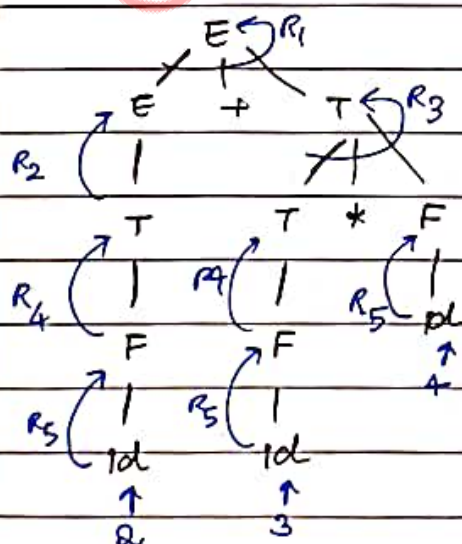 E R1
E + T R3
R2
T T * F
R4 R4 R5 id
F F 4
R5 R5
id id
2 3